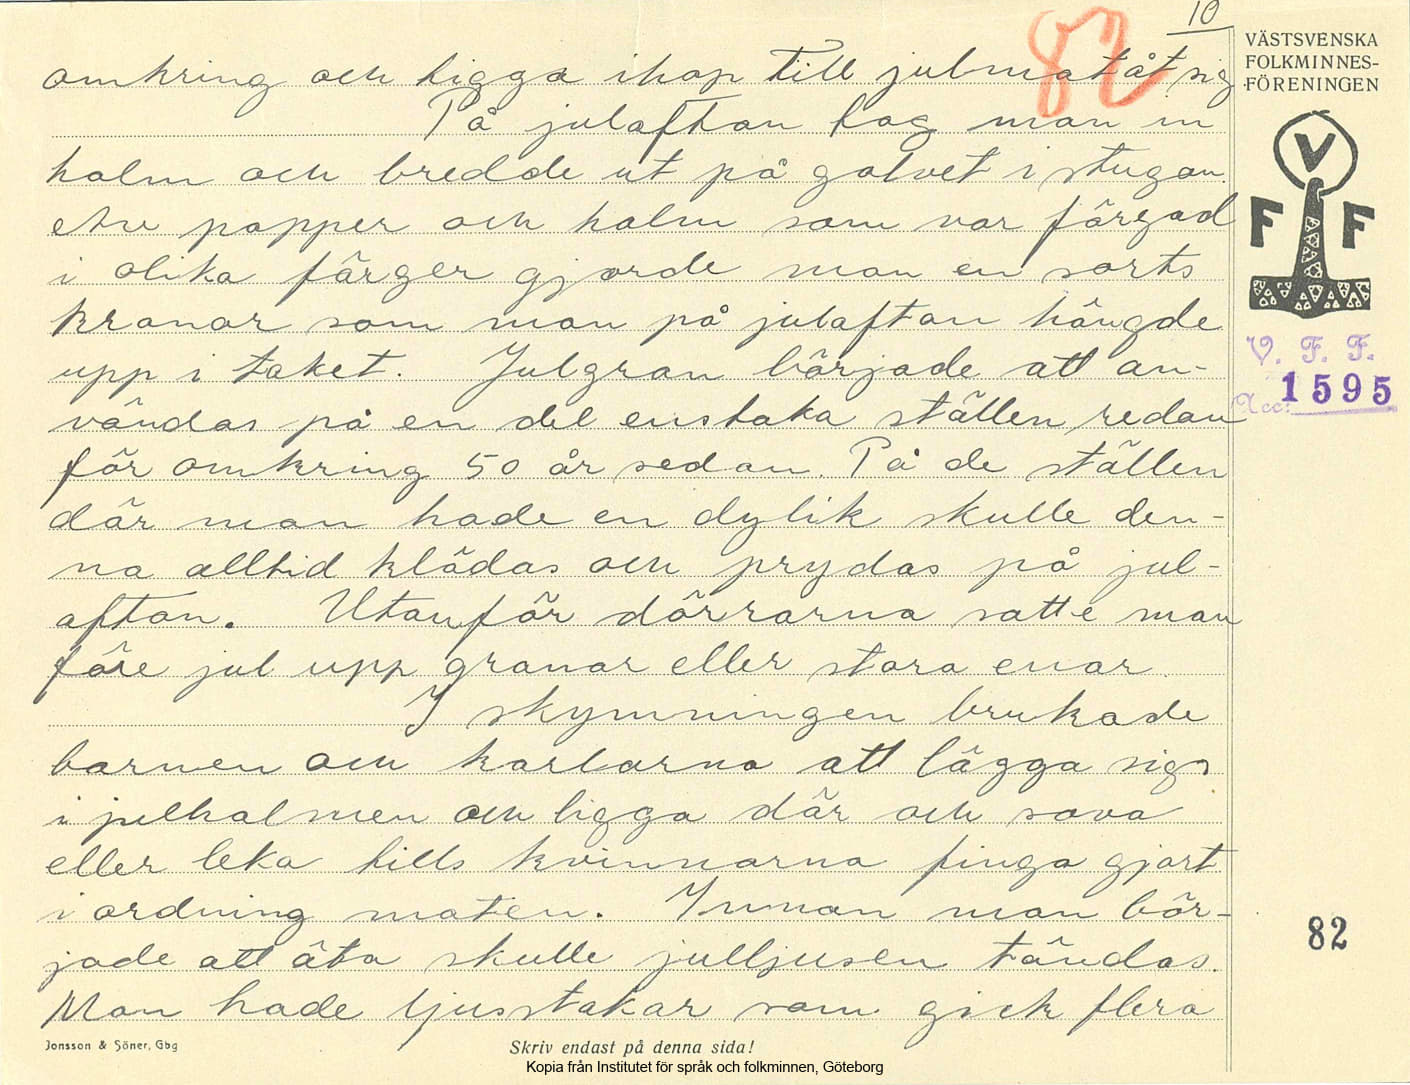 10
82
VÄSTSVENSKA
FOLKMINNES-
FÖRENINGEN
V
F F
V. F. F.
Acc: 1595
omkring och tigga ihop till julmat åt sig
På julaftan tog man in
halm och bredde ut på golvet i stugan.
Av papper och halm som var färgad
i olika färger gjorde man en sorts
kronor som man på julaftan hängde
upp i taket. Julgran började att an-
vändas på en del enstaka ställen redan
för omkring 50 år sedan. På de ställen
där man hade en dylik skulle den-
na alltid klädas och prydas på jul-
aftan. Utanför dörrarna satte man
före jul upp granar eller stora enar.
I skymningen brukade
barnen och karlarna att lägga sig
i julhalmen och ligga där och sova
eller leka tills kvinnorna finga gjort
i ordning maten. Innan man bör-
jade att äta skulle julljusen tändas.
Man hade ljusstakar som gick flera
82
Jonsson & Söner, Gbg
Skriv endast på denna sida!
Kopia från Institutet för språk och folkminnen, Göteborg